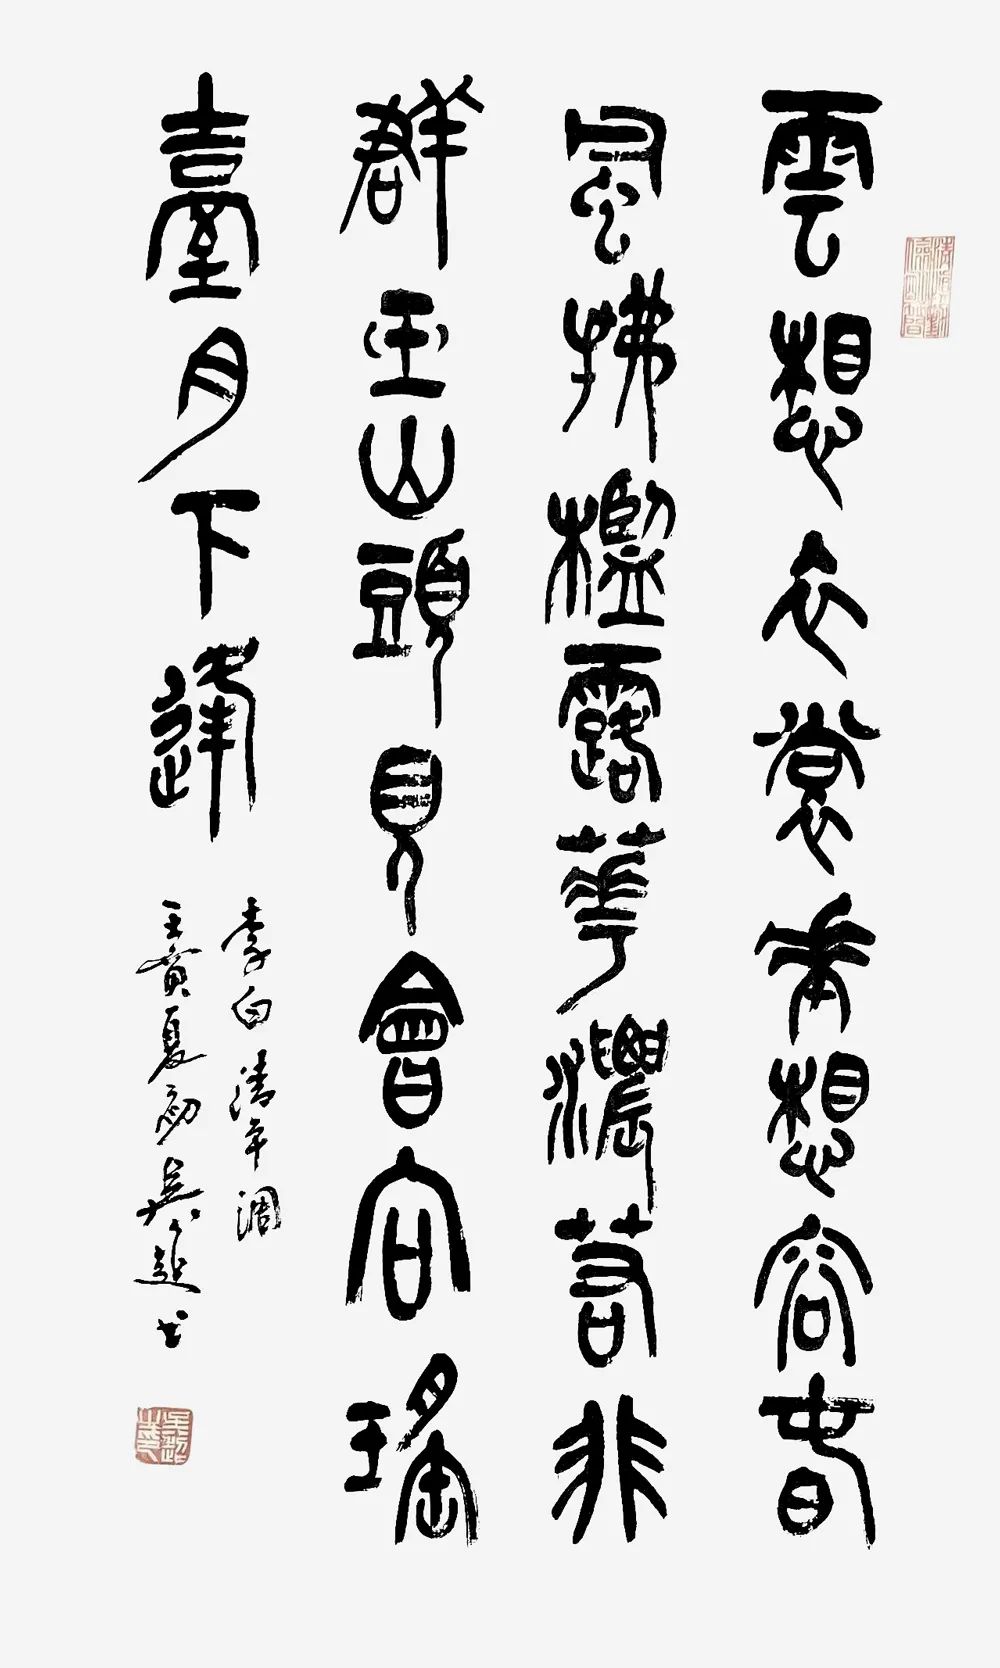 雲想衣裳花想容春
風拂檻露華濃若非
群玉山頭見會向瑤
臺月下逢
李白清平調
壬寅夏初吳超书